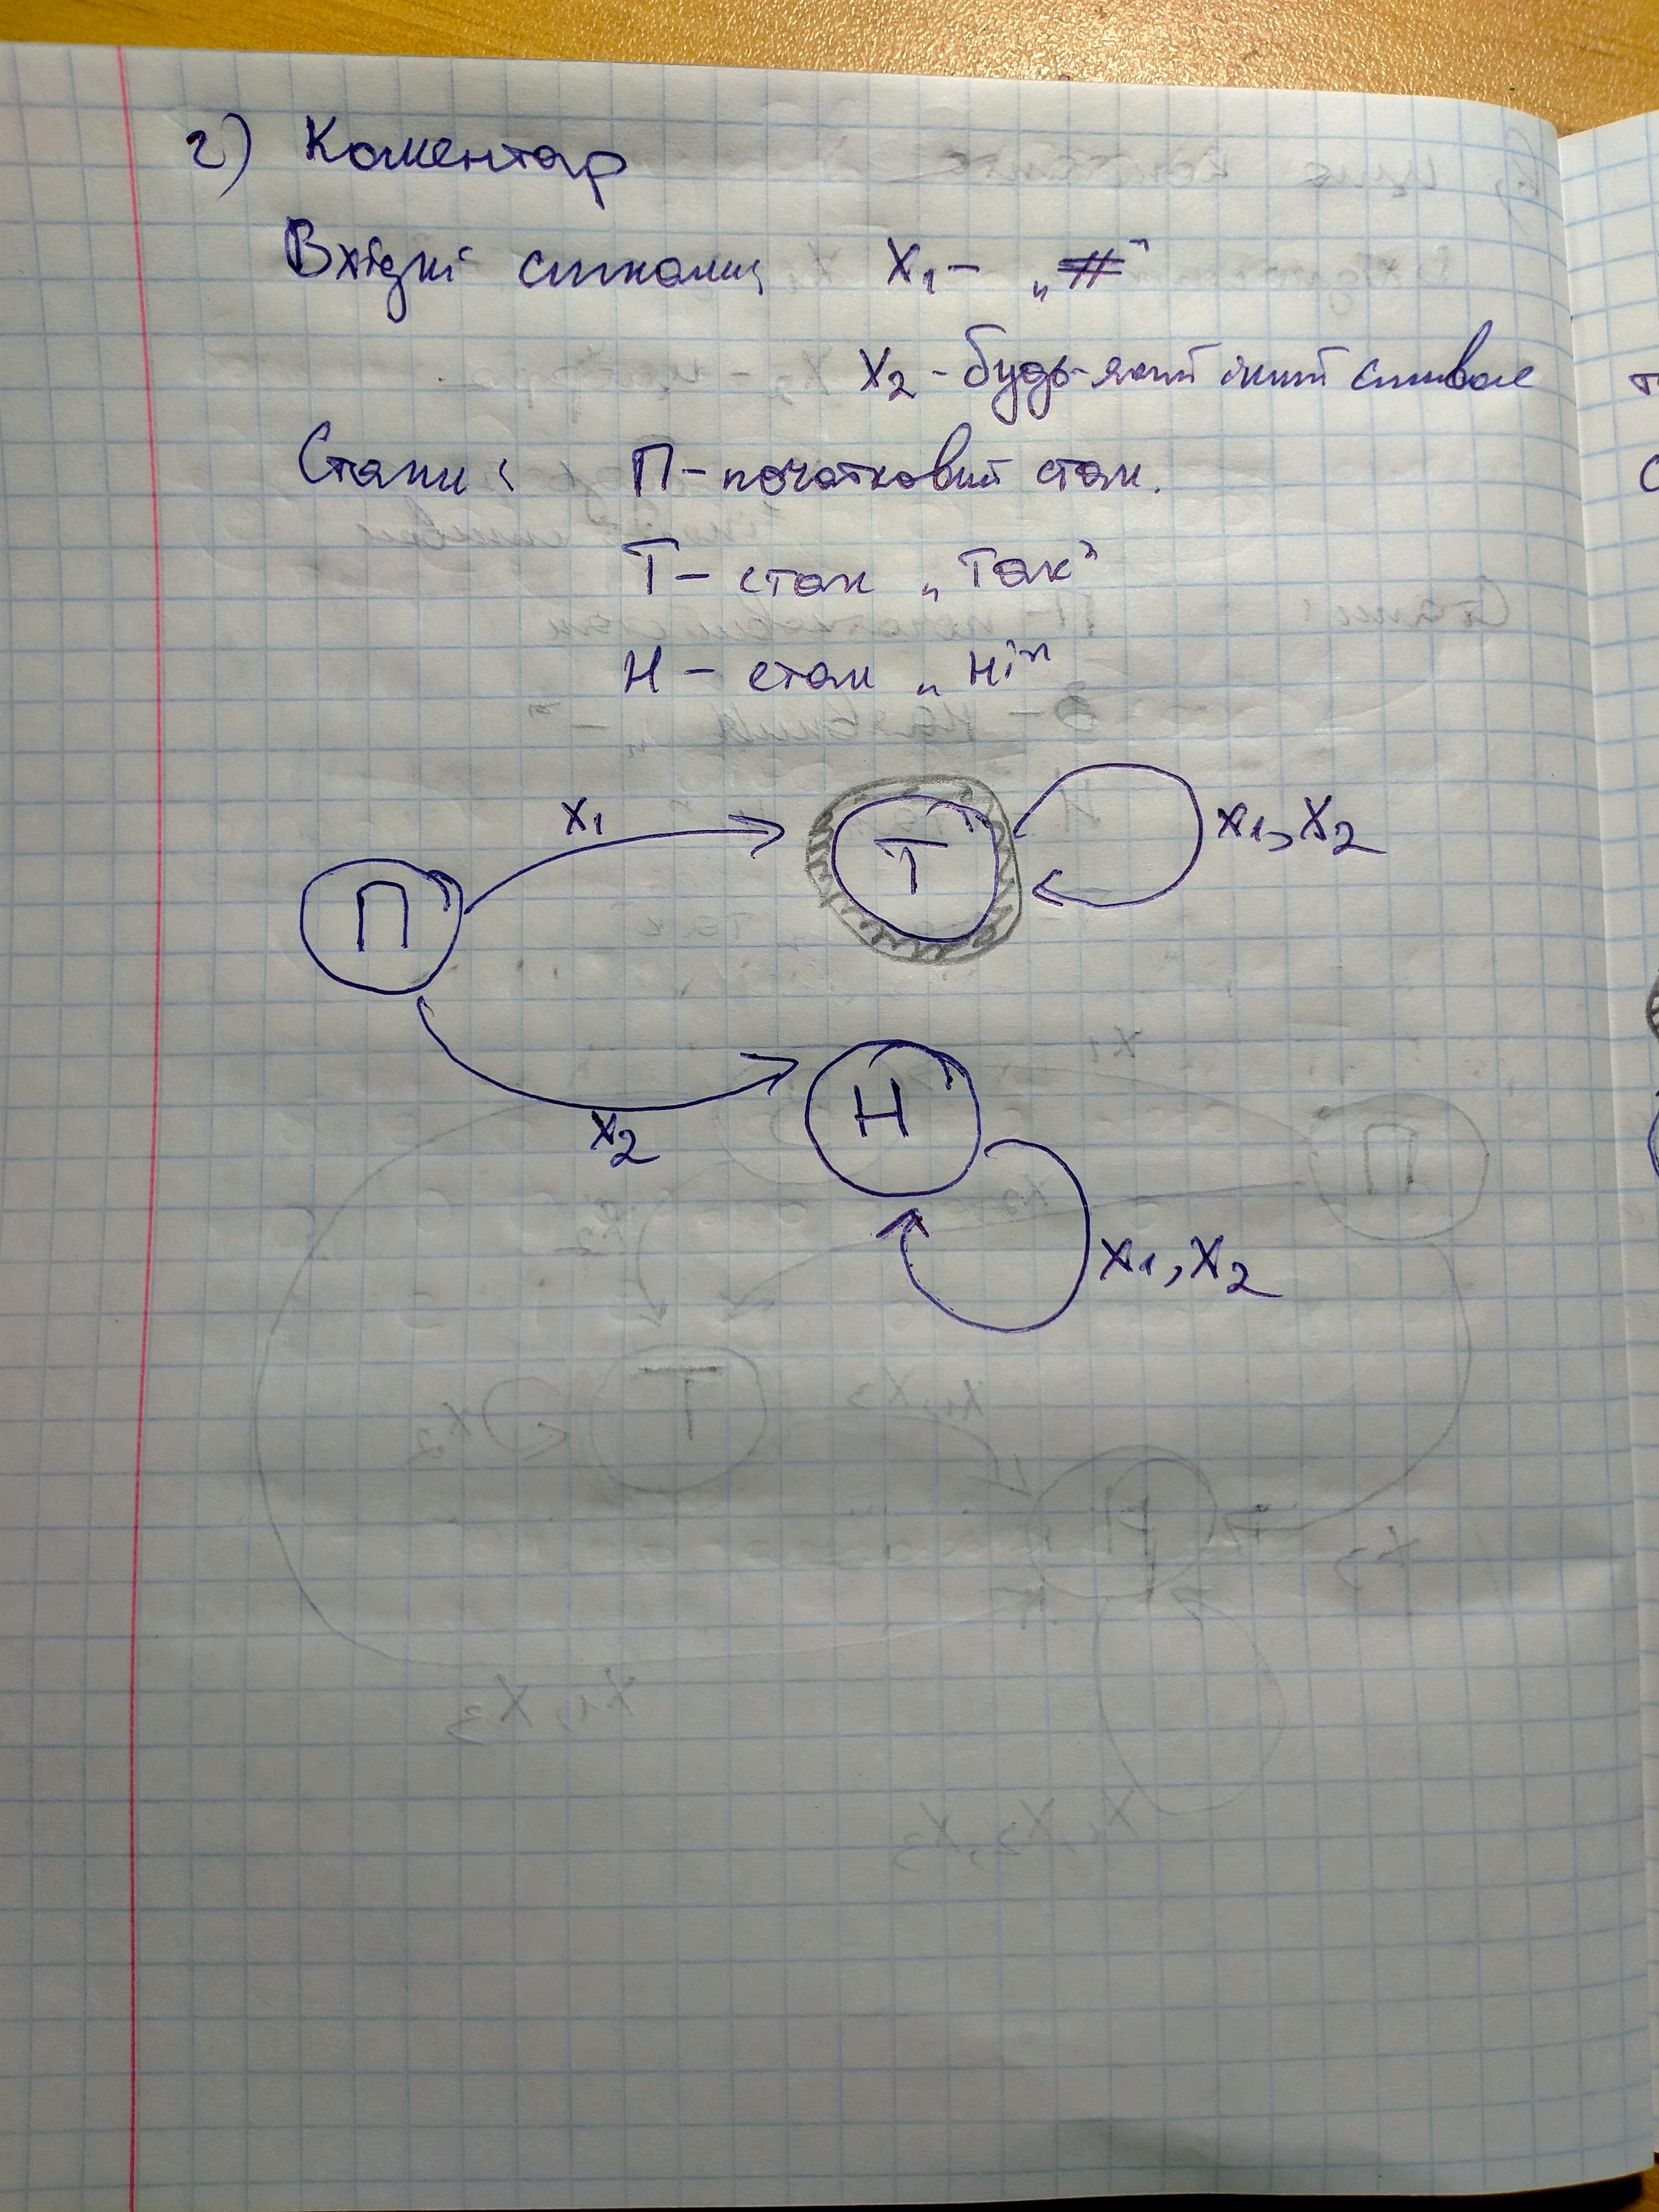 г) Коментар
Вхідні сигнали: X1 – „#"
X2 - будь-який інший символ
Стани: П – початковий стан.
Т – стан „Так"
Н – стан „Ні"
X1
Т
X1, X2
П
Н
X2
X1, X2